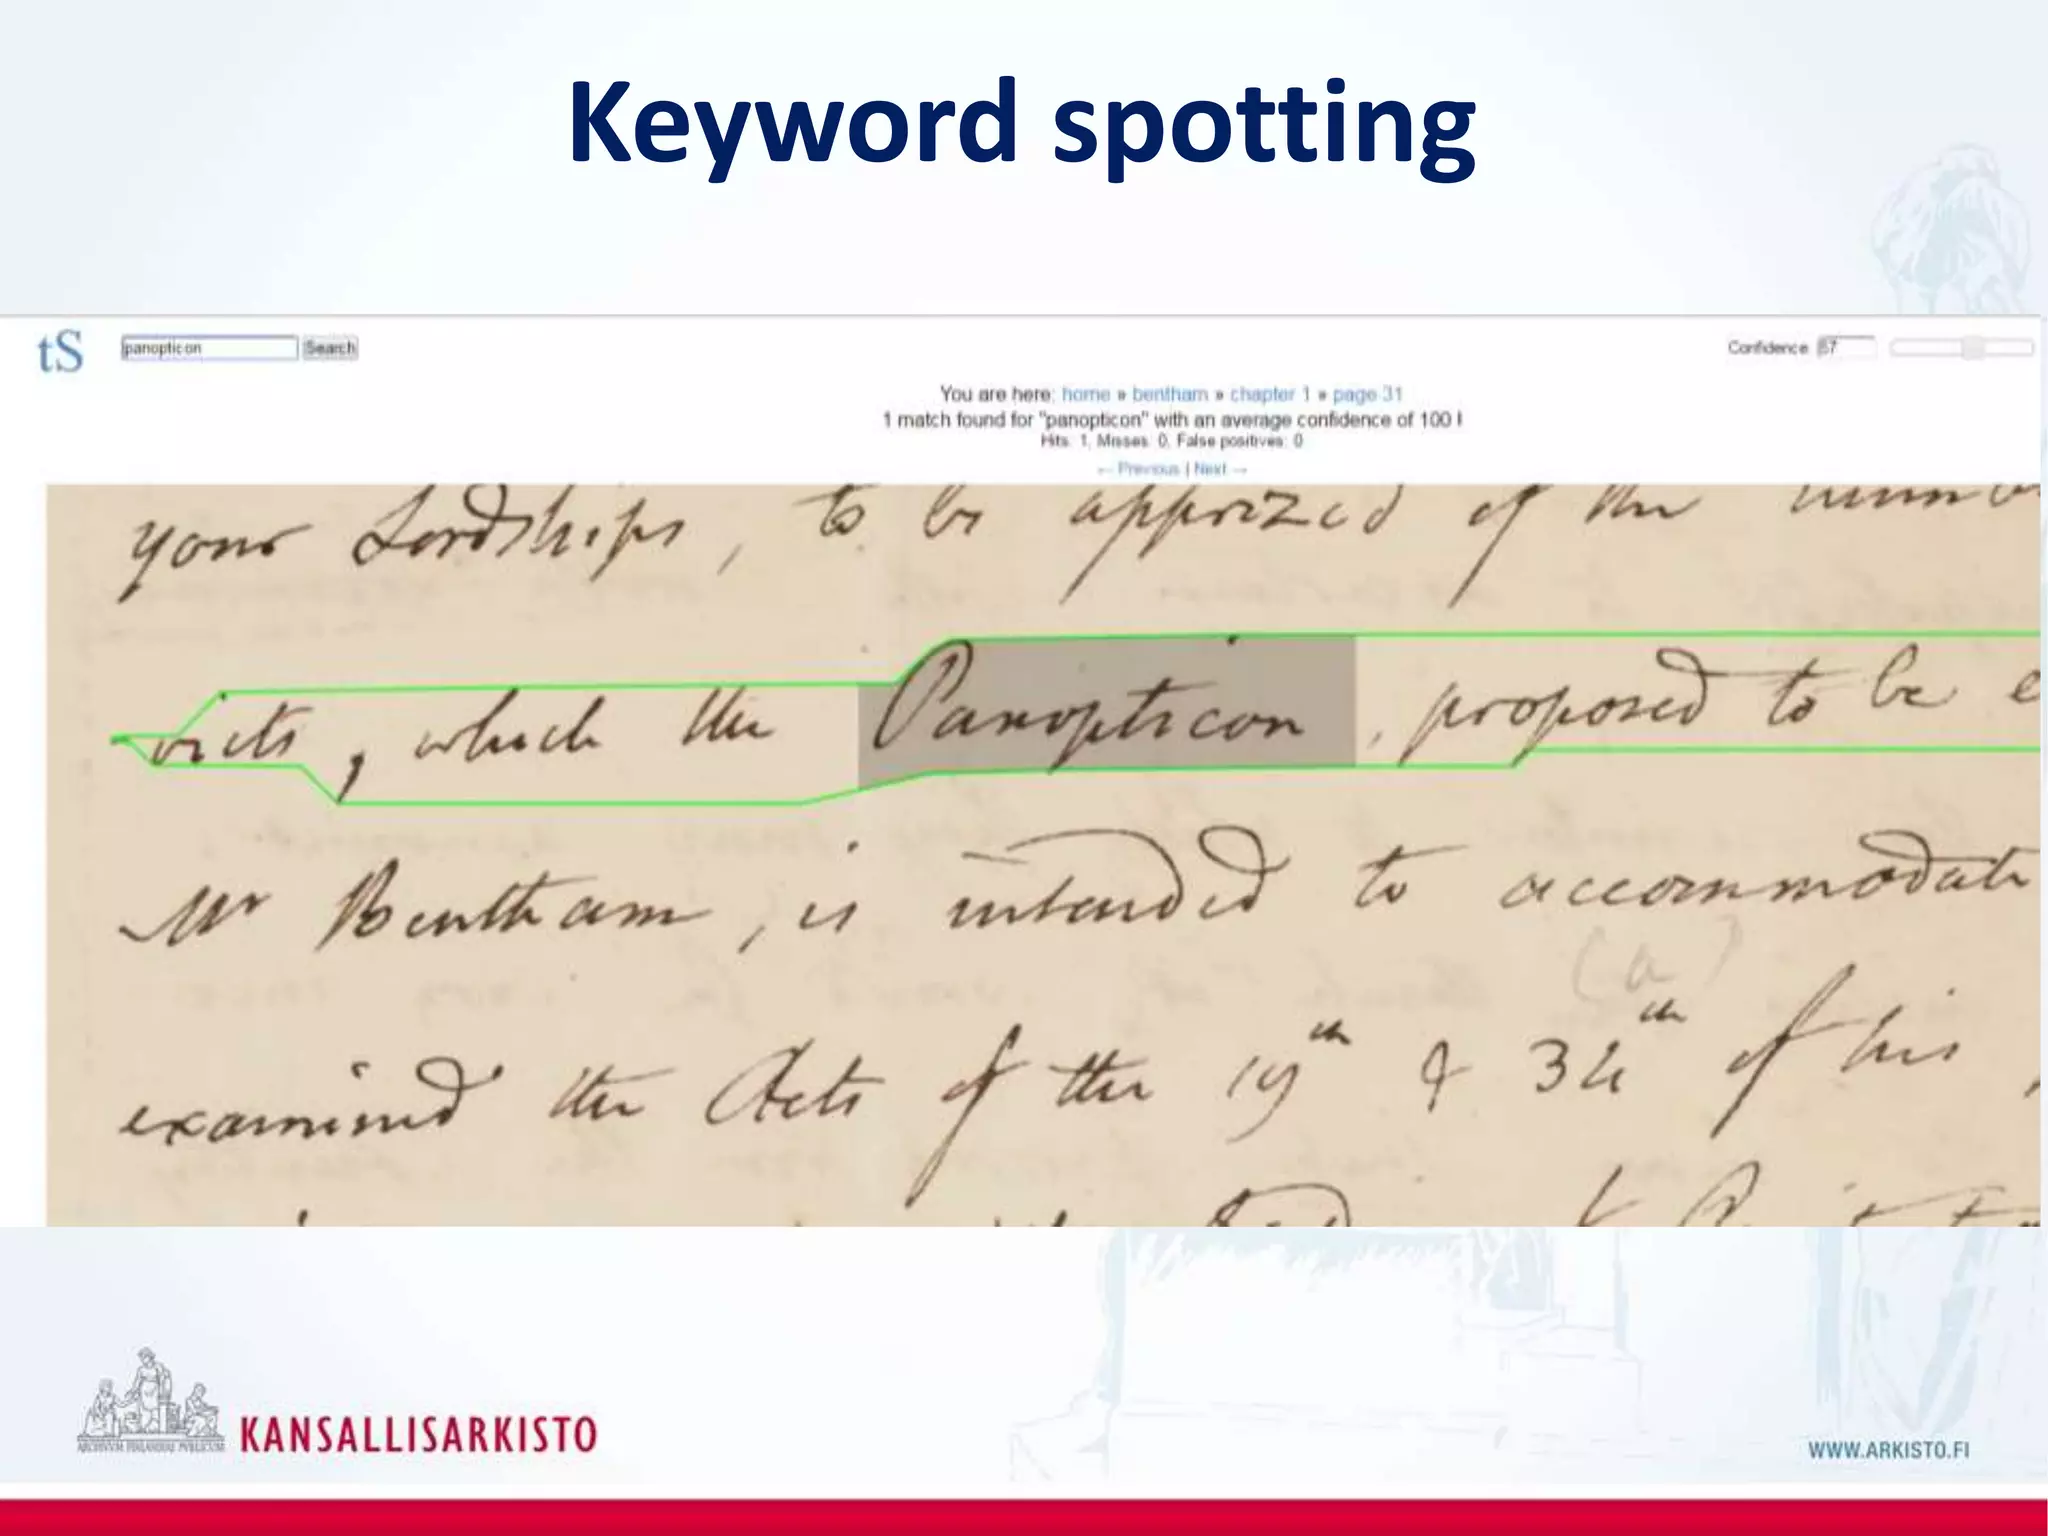 Keyword spotting
tS panopticon Search Confidence 57
You are here: home » bentham » chapter 1 » page 31
1 match found for "panopticon" with an average confidence of 100 !
Hits: 1, Misses: 0, False positives: 0
← Previous | Next →
your Lordships, to be apprized of the
victs, which the Panopticon, proposed to be
Mr Bentham, is intended to accommodate
(a)
examined the Acts of the 19th & 34th of his
ARCHIVUM FINLANDIAE PUBLICUM
KANSALLISARKISTO
WWW.ARKISTO.FI